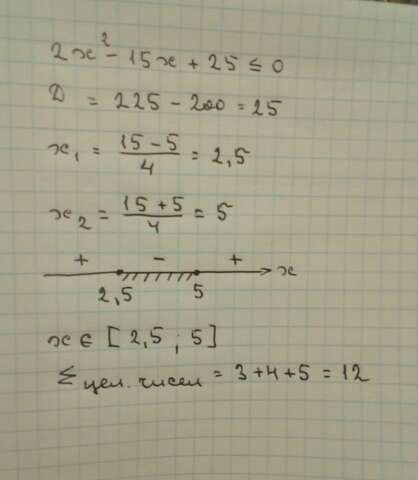 2x² - 15x + 25 ≤ 0
D = 225 - 200 = 25
x₁ = (15 - 5)/4 = 2,5
x₂ = (15 + 5)/4 = 5
+ - + x
2,5 5
x ∈ [2,5 ; 5]
Σ цел. чисел = 3+4+5 = 12